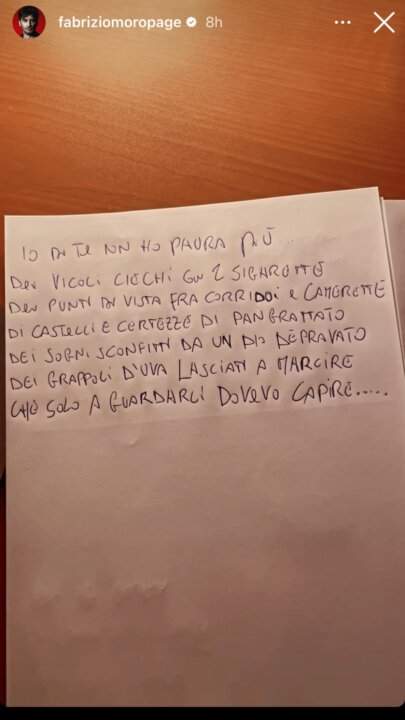 fabriziomoropage 8h
IO DI TE NN HO PAURA PIÙ
DEI VICOLI CIECHI CON 2 SIGARETTE
DEI PUNTI DI VISTA FRA CORRIDOI E CAMERETTE
DI CASTELLI E CERTEZZE DI PANGRATTATO
DEI SOGNI SCONFITTI DA UN DIO DEPRAVATO
DEI GRAPPOLI D'UVA LASCIATI A MARCIRE
CHE SOLO A GUARDARLI DOVEVO CAPIRE.....